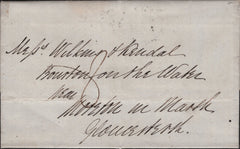 Messrs. Wilkins & Kendal
Bourton on the Water
near
Moreton in Marsh
Gloucestersh.